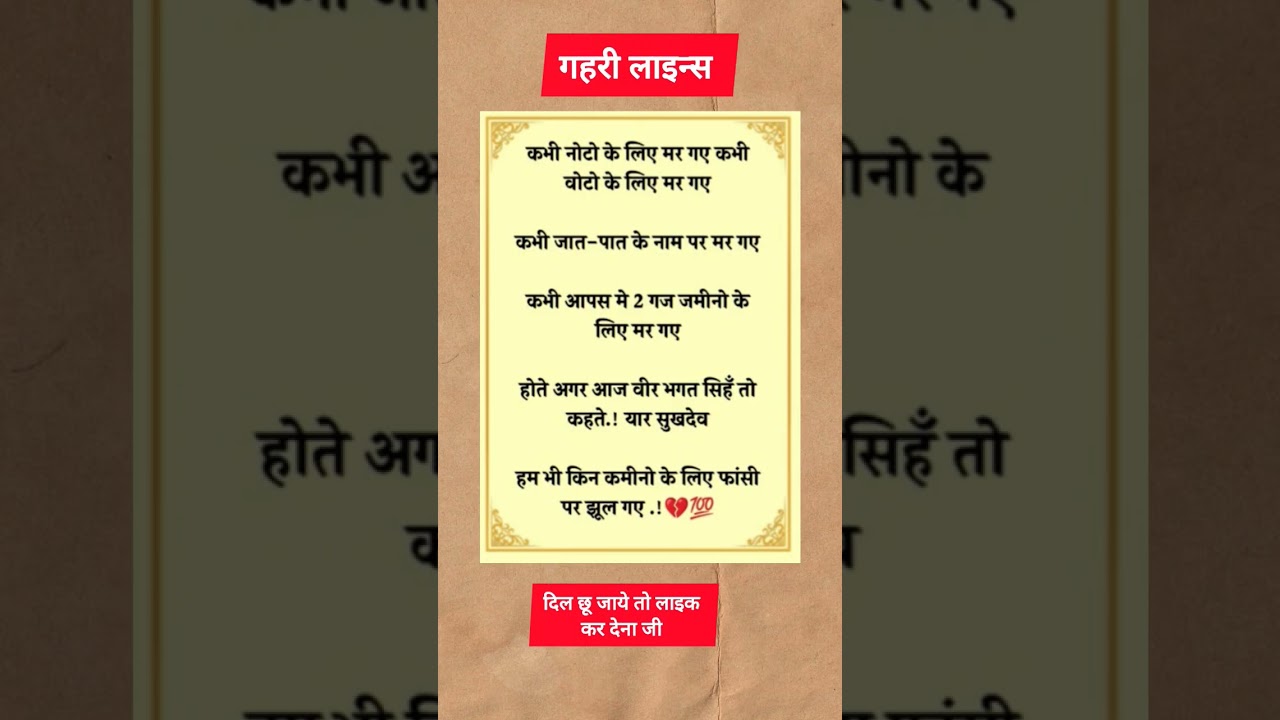 गहरी लाइन्स
कभी नोटो के लिए मर गए कभी
वोटो के लिए मर गए
कभी जात-पात के नाम पर मर गए
कभी आपस मे 2 गज जमीनो के
लिए मर गए
होते अगर आज वीर भगत सिहँ तो
कहते.! यार सुखदेव
हम भी किन कमीनो के लिए फांसी
पर झूल गए .!💔💯
दिल छू जाये तो लाइक
कर देना जी